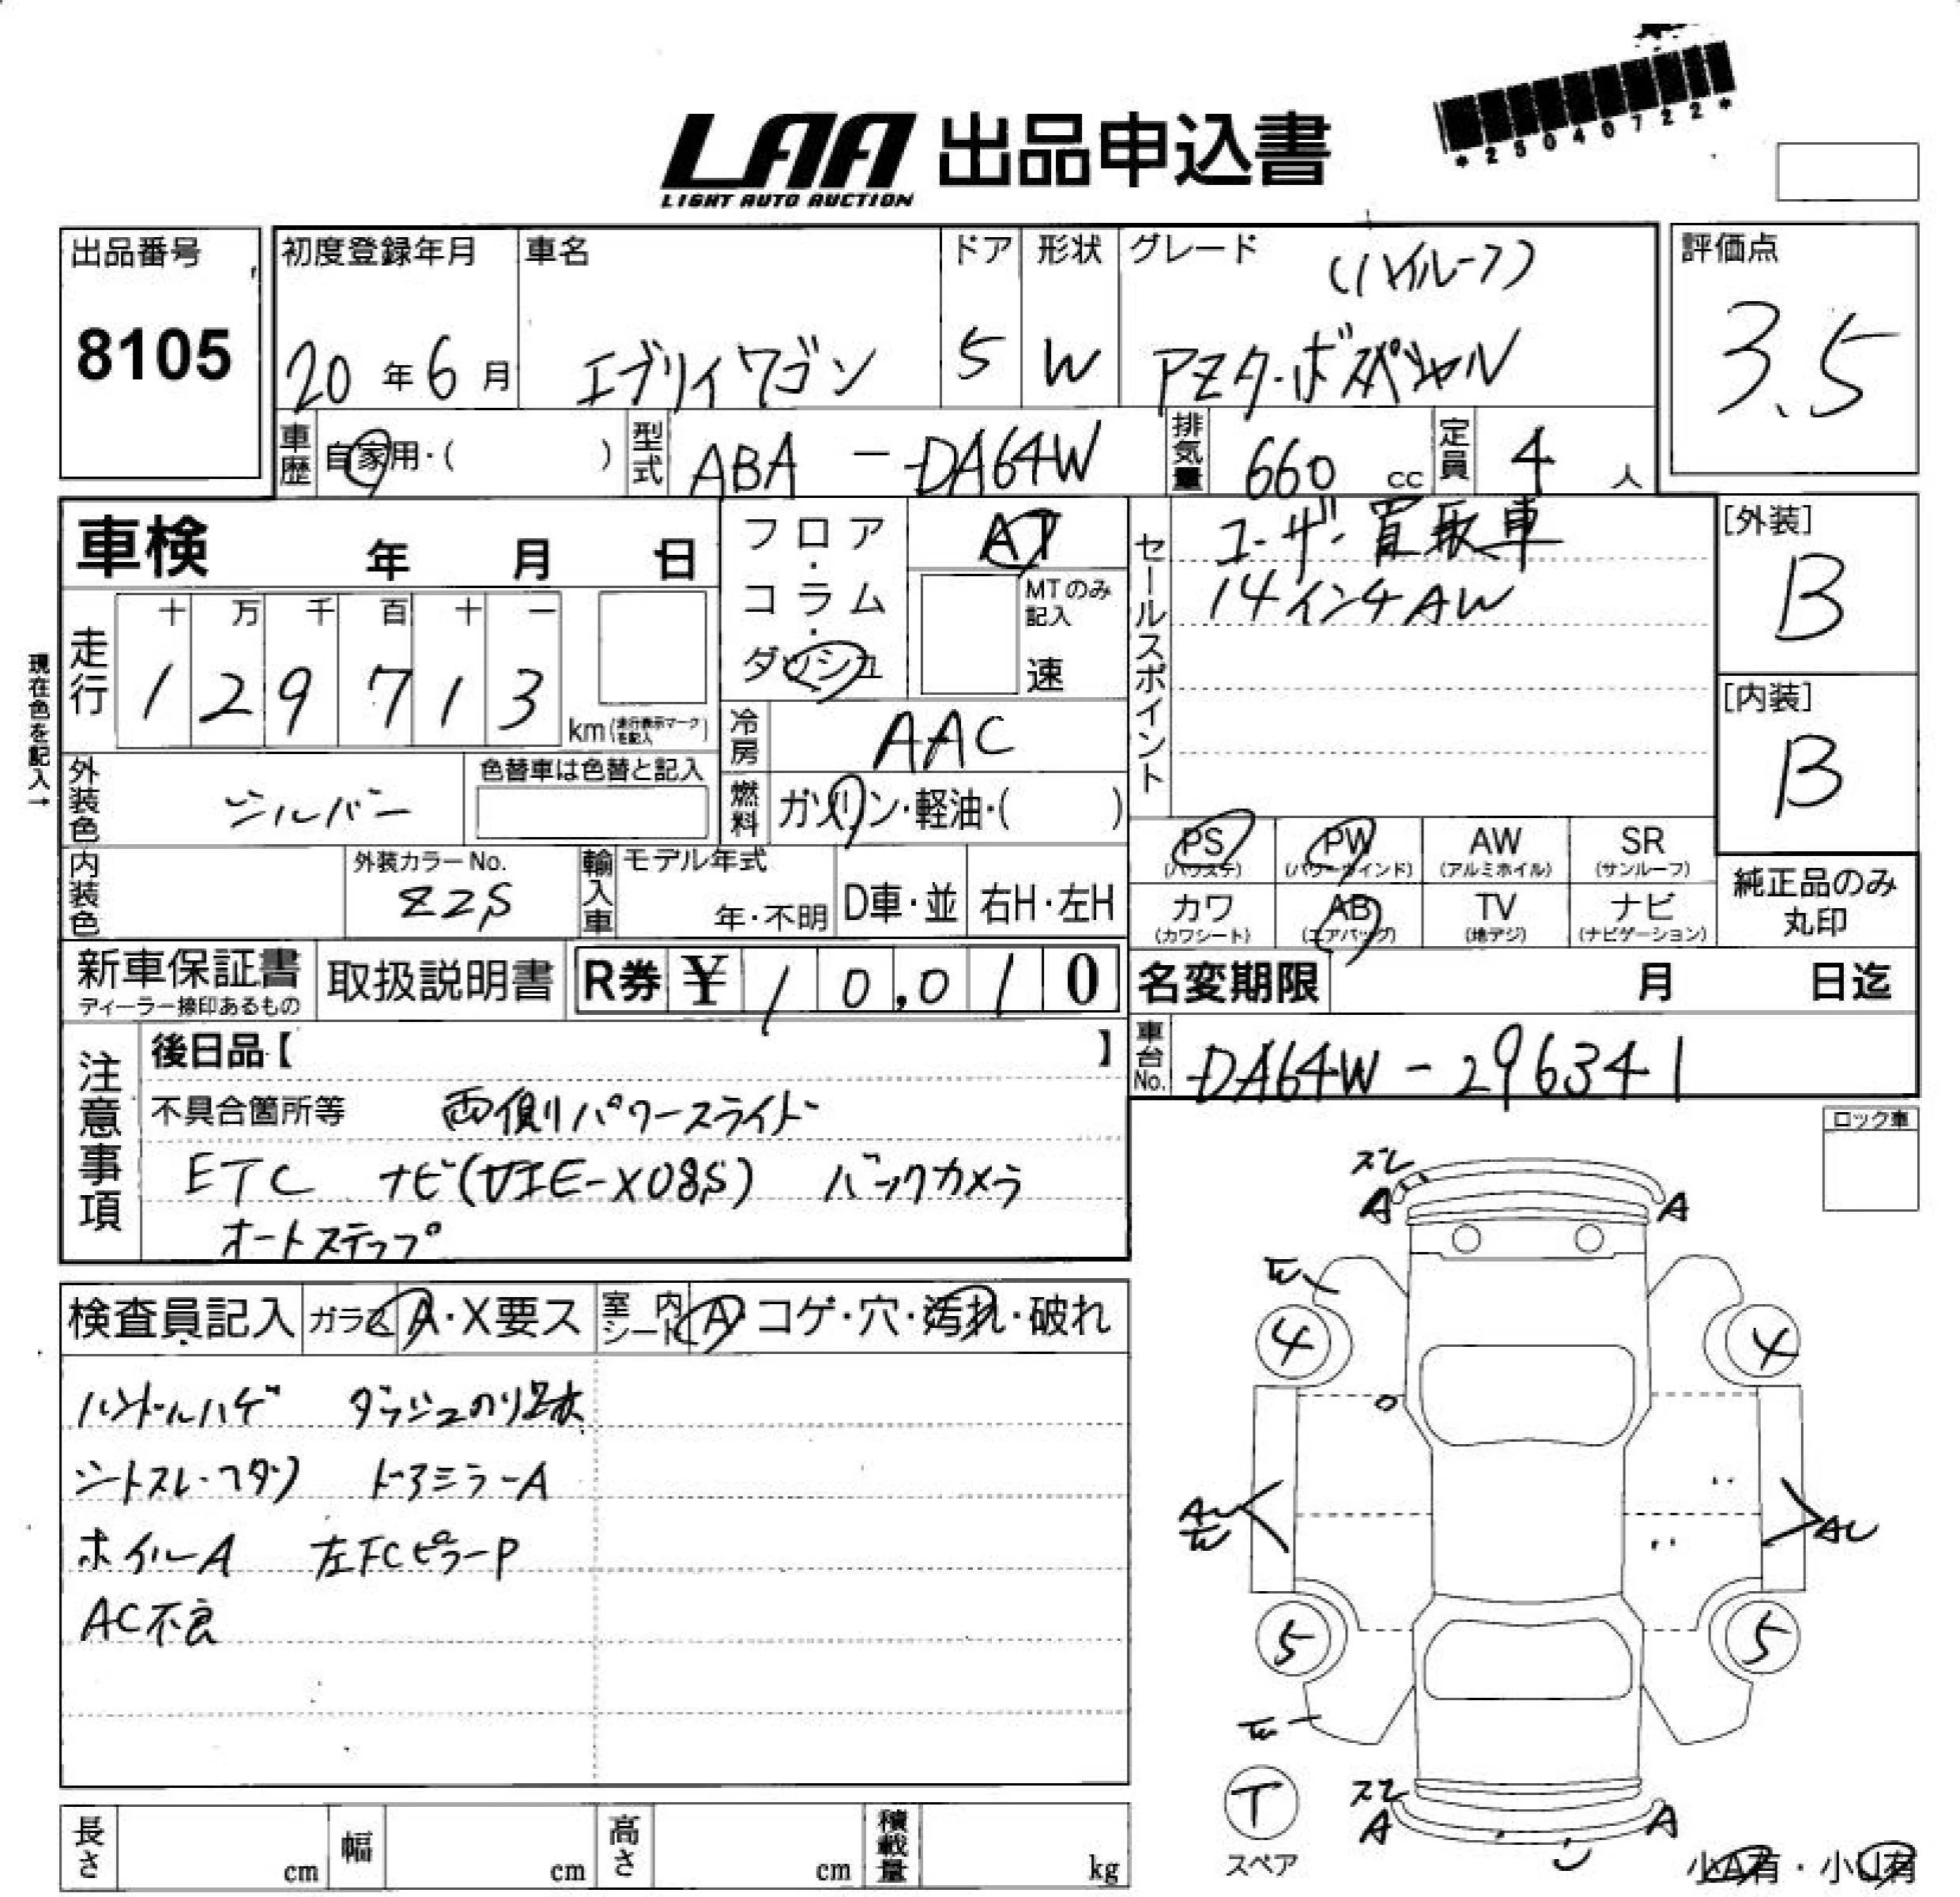 *25040722*
LAA 出品申込書
LIGHT AUTO AUCTION
出品番号
8105
初度登録年月
20年6月
車名
エブリイワゴン
ドア
5
形状
W
グレード (ハイルーフ)
PZターボスペシャル
評価点
3.5
車歴 自家用・( )
型式 ABA-DA64W
排気量 660cc
定員 4人
車検 年 月 日
フロア・コラム・ダッシュ
AT
MTのみ記入
速
セールスポイント
ユーザー買取車
14インチAW
[外装]
B
[内装]
B
現在色を記入→
走行
十 万 千 百 十 一
1 2 9 7 1 3
km(走行表示マークを記入)
冷房 AAC
燃料 ガソリン・軽油・( )
外装色 シルバー
色替車は色替と記入
内装色
外装カラーNo.
Z2S
輸入車
モデル年式
年・不明
D車・並
右H・左H
PS (パワステ)
PW (パワーウインド)
AW (アルミホイル)
SR (サンルーフ)
カワ (カワシート)
AB (エアバッグ)
TV (地デジ)
ナビ (ナビゲーション)
純正品のみ
丸印
新車保証書
ディーラー捺印あるもの
取扱説明書
R券 ¥10,010
名変期限 月 日迄
車台No. DA64W-296341
注意事項
後日品【 】
不具合箇所等 両側パワースライド
ETC ナビ(VIE-X08S) バックカメラ
オートステップ
ロック車
検査員記入 ガラス A・X要ス
室内シート A・コゲ・穴・汚れ・破れ
ハンドルハゲ ダッシュのり跡
シートスレ・ヘタリ ドアミラーA
ホイルA 左FCピラーP
AC不良
スレ
A A
4 4
AU
AU
5 5
T
スペア
スレ
A A
小A有・小U有
長さ cm
幅 cm
高さ cm
積載量 kg